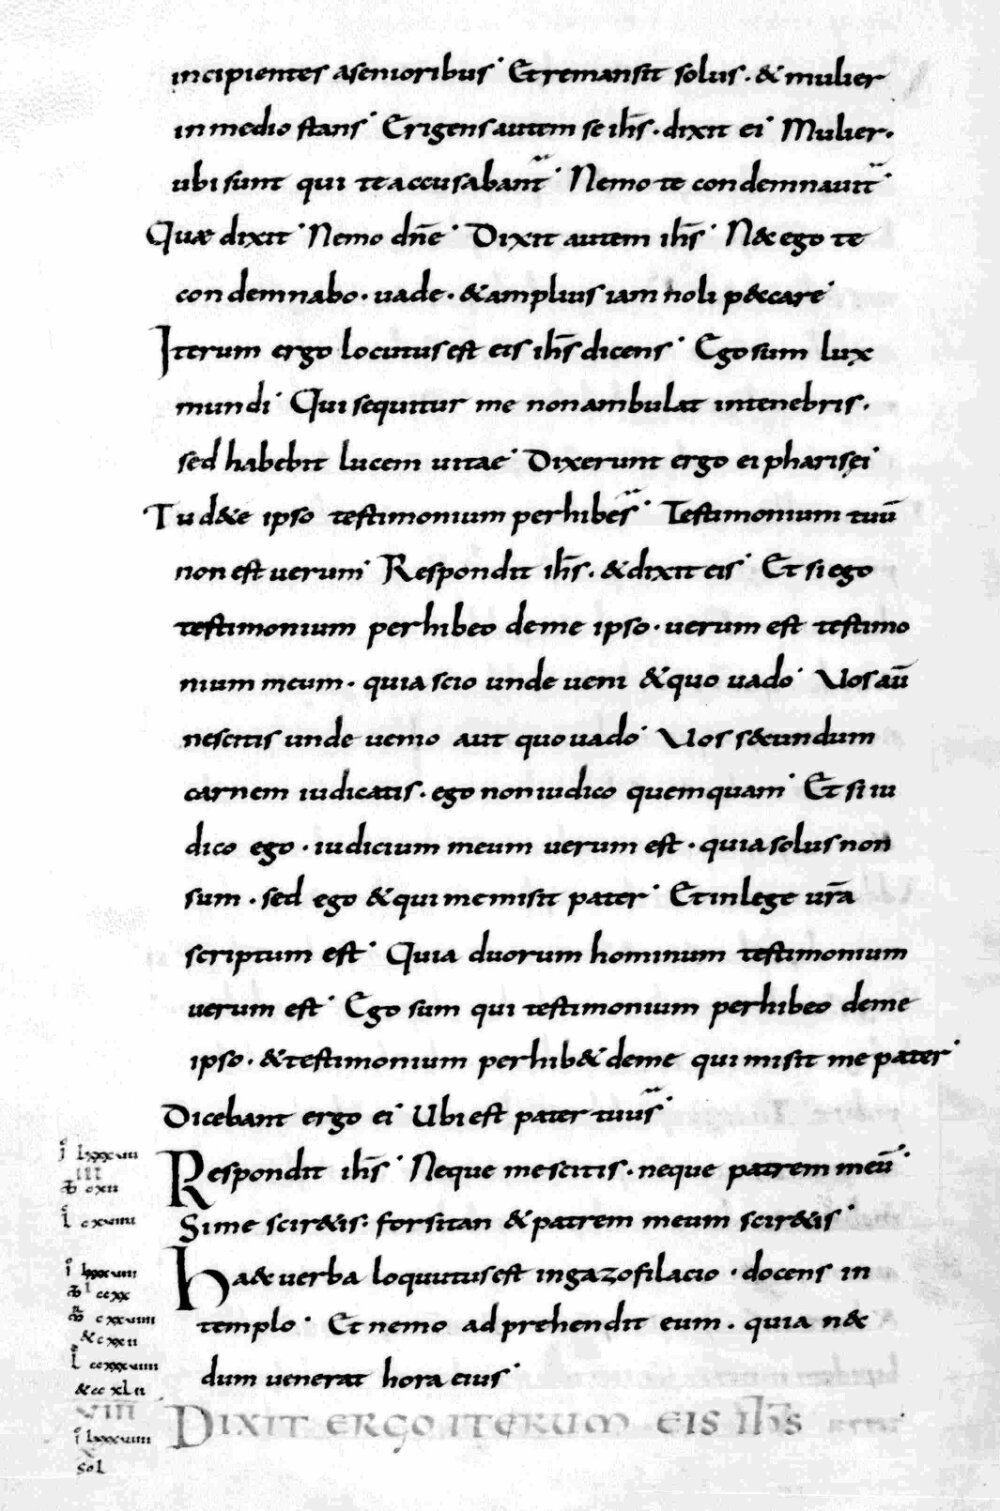 incipientes asenioribus· Et remansit solus· & mulier
in medio stans· Erigens autem se ih̅s· dixit ei· Mulier·
ubi sunt qui te accusabant· Nemo te condemnauit·
Quae dixit· Nemo dn̅e· Dixit autem ih̅s· N& ego te
condemnabo· uade· & amplius iam noli p&ccare·
Iterum ergo locutus est eis ih̅s dicens· Ego sum lux
mundi· Qui sequitur me non ambulat in tenebris·
sed habebit lucem uitae· Dixerunt ergo ei pharisei·
Tu d&e ipso testimonium perhibes· Testimonium tuū
non est uerum· Respondit ih̅s· & dixit eis· Et si ego
testimonium perhibeo de me ipso· uerum est testimo
nium meum· quia scio unde ueni & quo uado· Uos aū
nescitis unde uenio aut quo uado· Uos s&cundum
carnem iudicatis· ego non iudico quemquam· Et si iu
dico ego· iudicium meum uerum est· quia solus non
sum· sed ego & qui me misit pater· Et in lege ur̅a
scriptum est· Quia duorum hominum testimonium
uerum est· Ego sum qui testimonium perhibeo de me
ipso· & testimonium perhib& de me qui misit me pater·
Dicebant ergo ei· Ubi est pater tuus·
Respondit ih̅s· Neque me scitis· neque patrem meū·
Si me scir&is: forsitan & patrem meum scir&is·
Ha&c uerba loquutus est in gazofilacio· docens in
templo· Et nemo adprehendit eum· quia n&c
dum uenerat hora eius·
DIXIT ERGO ITERUM EIS IH̅S
III
VIII
sol